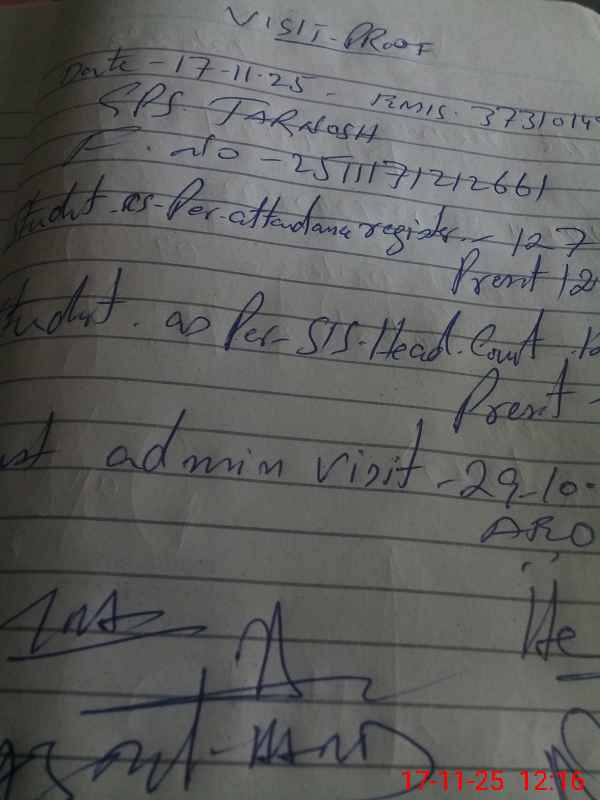 VISIT-PROOF
Date - 17-11-25. EMIS. 3731014
GPS. TARNOSH
F. No - 2511171212661
Student-as-Per-attendance register - 127
Present 12
Student. as Per-SIS-Head.Count. 12
Present -
admin visit - 29-10-
ARO
He
17-11-25 12:16